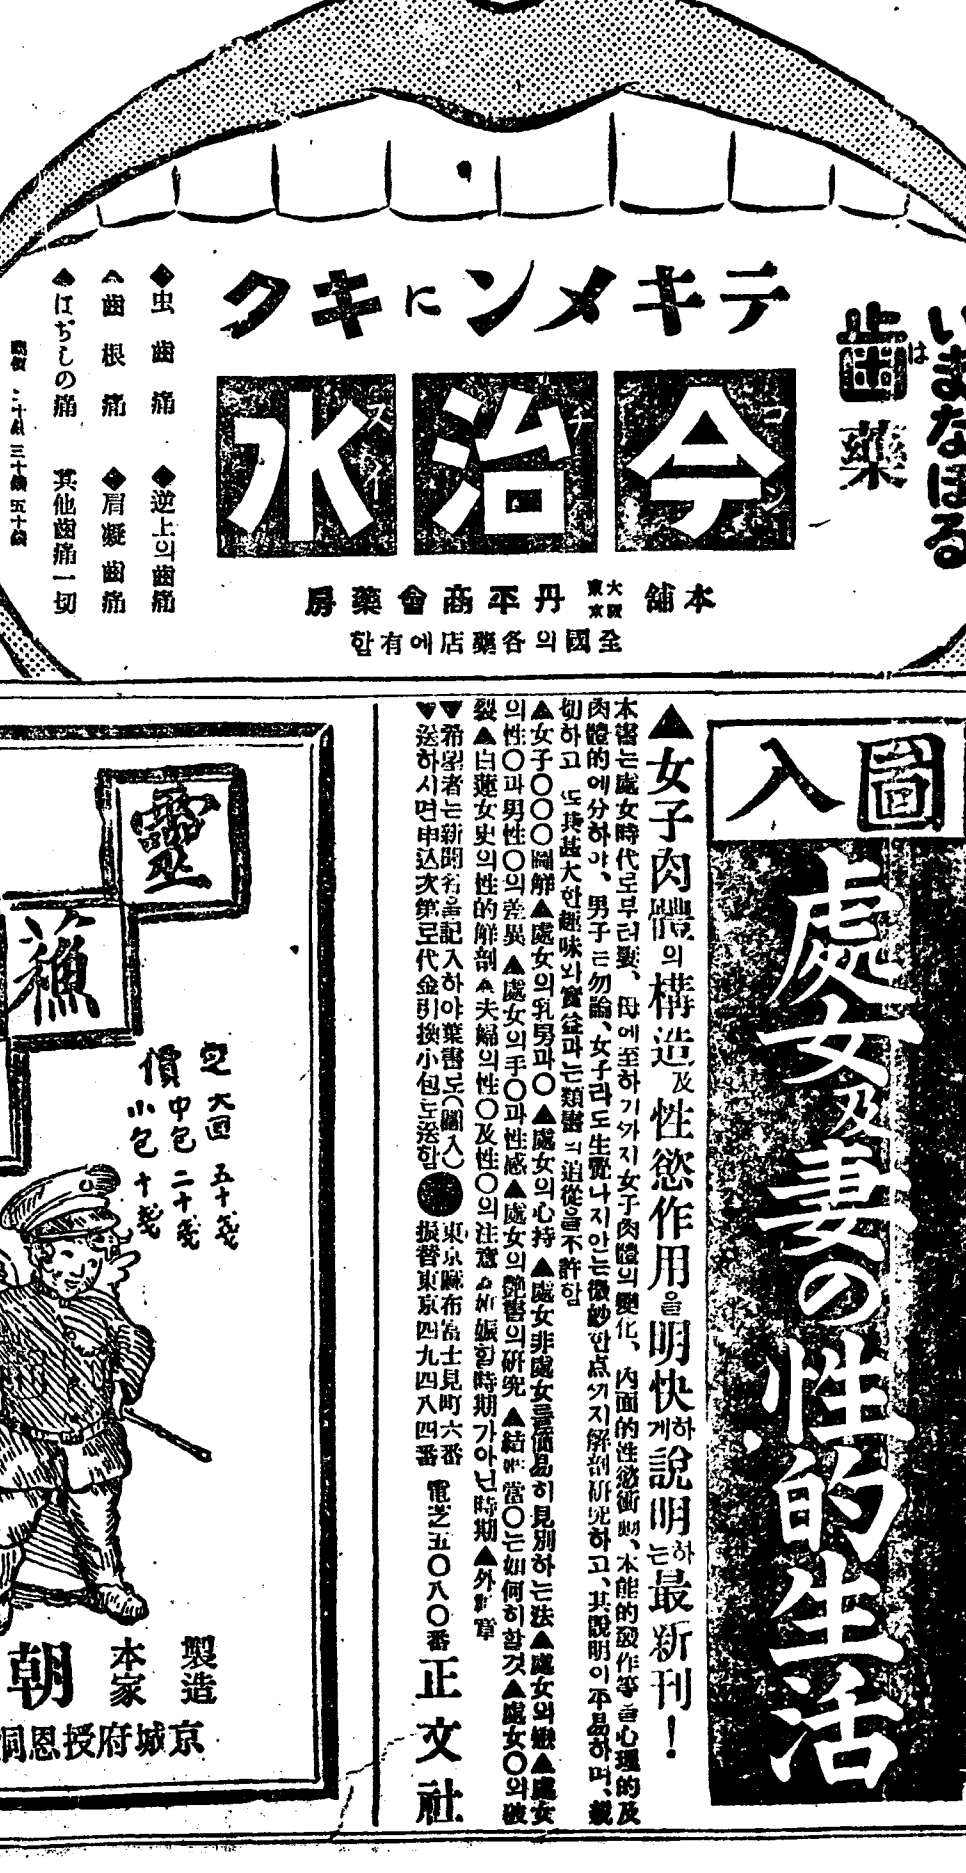 いまなほる
歯は藥
テキメンにキク
今治水
コンチスイ
本舗 大阪東京 丹平商會藥房
全國의各藥店에有함
◆虫歯痛 ◆逆上의歯痛
◆歯根痛 ◆肩凝歯痛
◆はぢしの痛 其他歯痛一切
二十銭 三十銭 五十銭
圖入
處女及妻の性的生活
▲女子肉體의構造及性慾作用을明快하게說明하는最新刊！
本書는處女時代로부터妻、母에至하기까지女子肉體의變化、內面的性慾衝動、本能的發作等을心理的及
肉體的에分하야、男子는勿論、女子라도生覺나지안는微妙한点까지解剖硏究하고、其說明이平易하며、親
切하고 또其甚大한趣味와實益과는類書의追從을不許함
▲女子〇〇〇圖解▲處女의乳男과〇▲處女의心持▲處女非處女를簡易히見別하는法▲處女와嫉▲處女
의性〇과男性〇의差異▲處女의手〇과性感▲處女의艶書의硏究▲結婚當〇는如何히할것▲處女〇의破
裂▲白蓮女史의性的解剖▲夫婦의性〇及性〇의注意▲姙娠할時期가아닌時期▲外數章
▼希望者는新聞名을記入하야葉書도(圖入) 東京麻布富士見町六番
▼送하시면申込次第로代金引換小包로送함 振替東京四九四八四番
電芝五〇八〇番 正文社
靈
蘇
定價
大函 五十戔
中包 二十戔
小包 十戔
製造本家
朝
京城府授恩洞